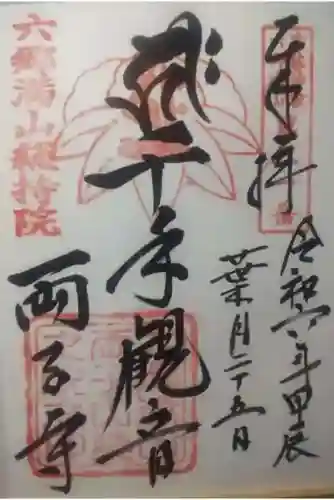 奉拝
令和六年甲辰
葉月二十五日
千手観音
両子寺
六郷満山総持院